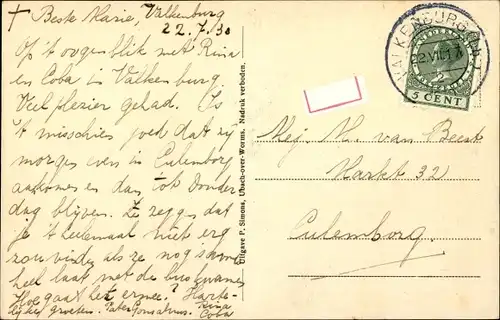 + Beste Marie, Valkenburg
22.7.30
Op 't oogenblik met Rina
en Coba in Valkenburg
Veel plezier gehad. Is
't misschien goed dat zij
morgen even in Culemborg
aankomen en dan ook Donder
dag blijven. Ze zeggen dat
je 't heelemaal niet erg
zou vinden als ze nog 's avonds
heel laat met de bus kwamen
Hoe gaat het ermee? Harte-
lijke groeten. Pater Gonsalvus. Rina
Coba
Uitgave P. Simons, Ubach-over-Worms. Nadruk verboden.
VALKENBURG
22.VII
5 CENT
Mej M. van Beek
Markt 32
Culemborg.